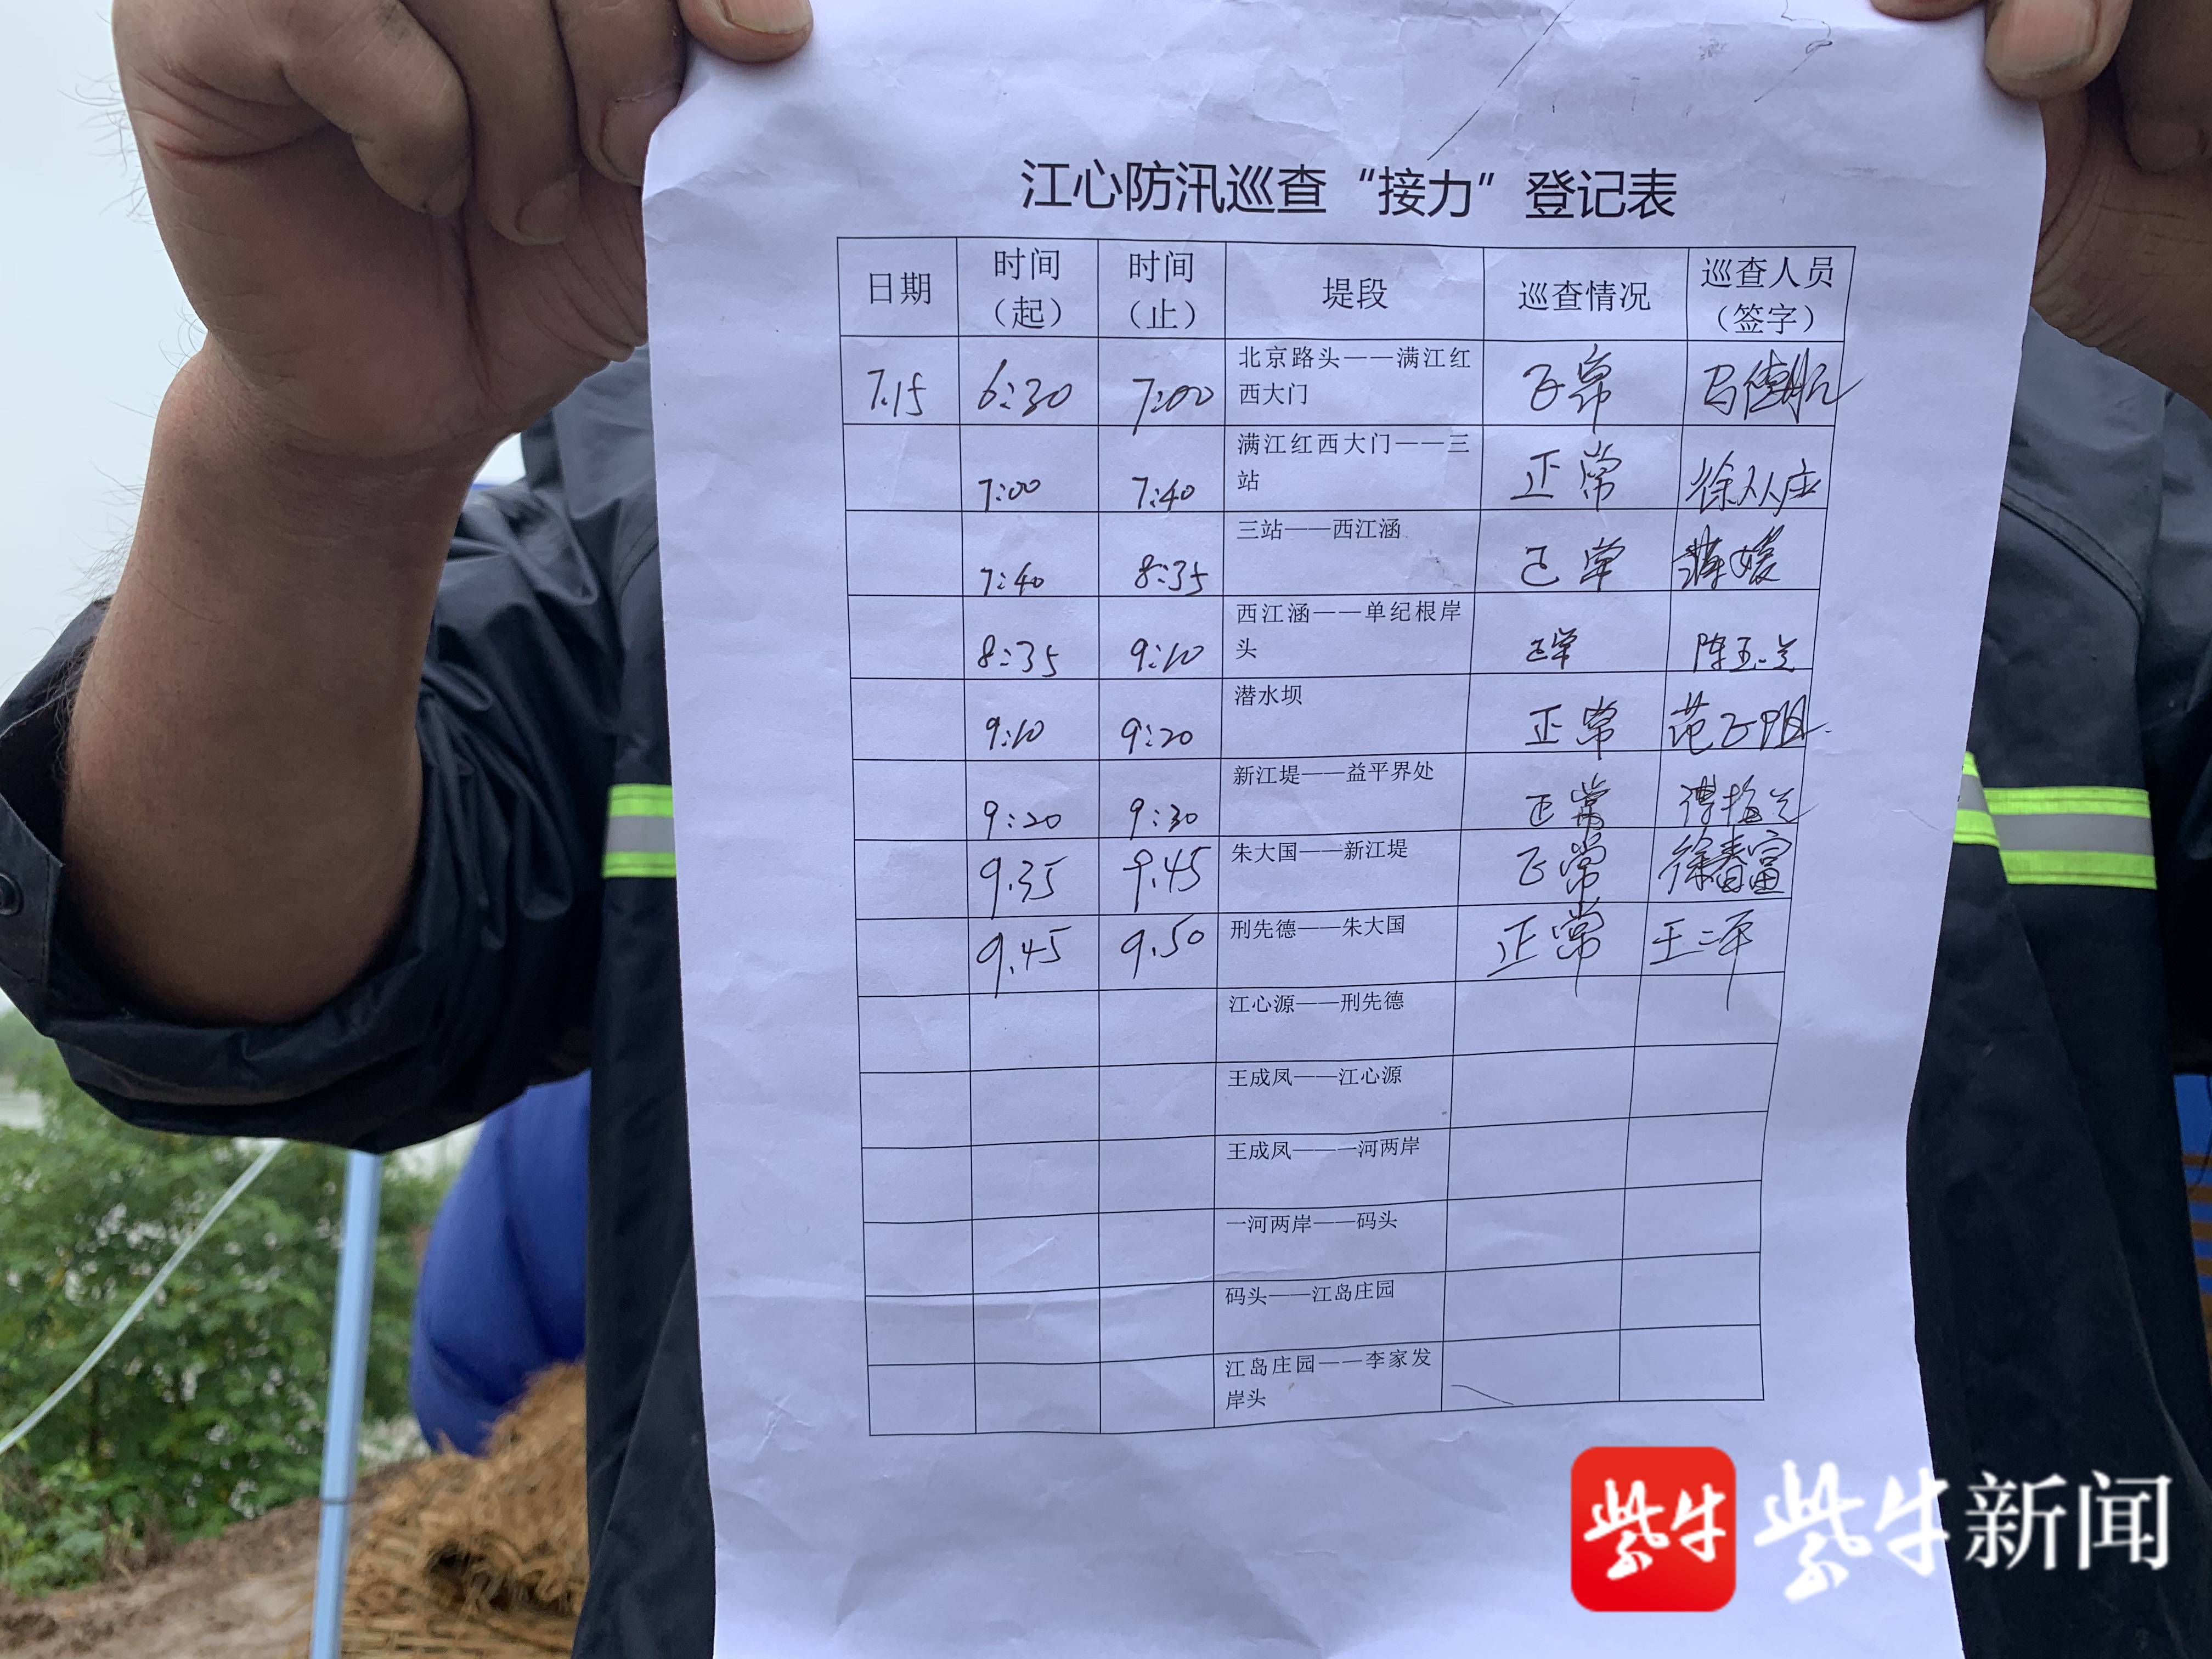 江心防汛巡查“接力”登记表
日期 时间（起） 时间（止） 堤段 巡查情况 巡查人员（签字）
7.15 6:30 7:00 北京路头——满江红西大门 正常
7:00 7:40 满江红西大门——三站 正常 徐从庄
7:40 8:35 三站——西江涵 正常 薛媛
8:35 9:10 西江涵——单纪根岸头 正常 陈玉兰
9:10 9:20 潜水坝 正常
9:20 9:30 新江堤——益平界处 正常 谭梅兰
9.35 9.45 朱大国——新江堤 正常 徐春富
9.45 9.50 刑先德——朱大国 正常 王三平
江心源——刑先德
王成凤——江心源
王成凤——一河两岸
一河两岸——码头
码头——江岛庄园
江岛庄园——李家发岸头
紫牛 紫牛新闻